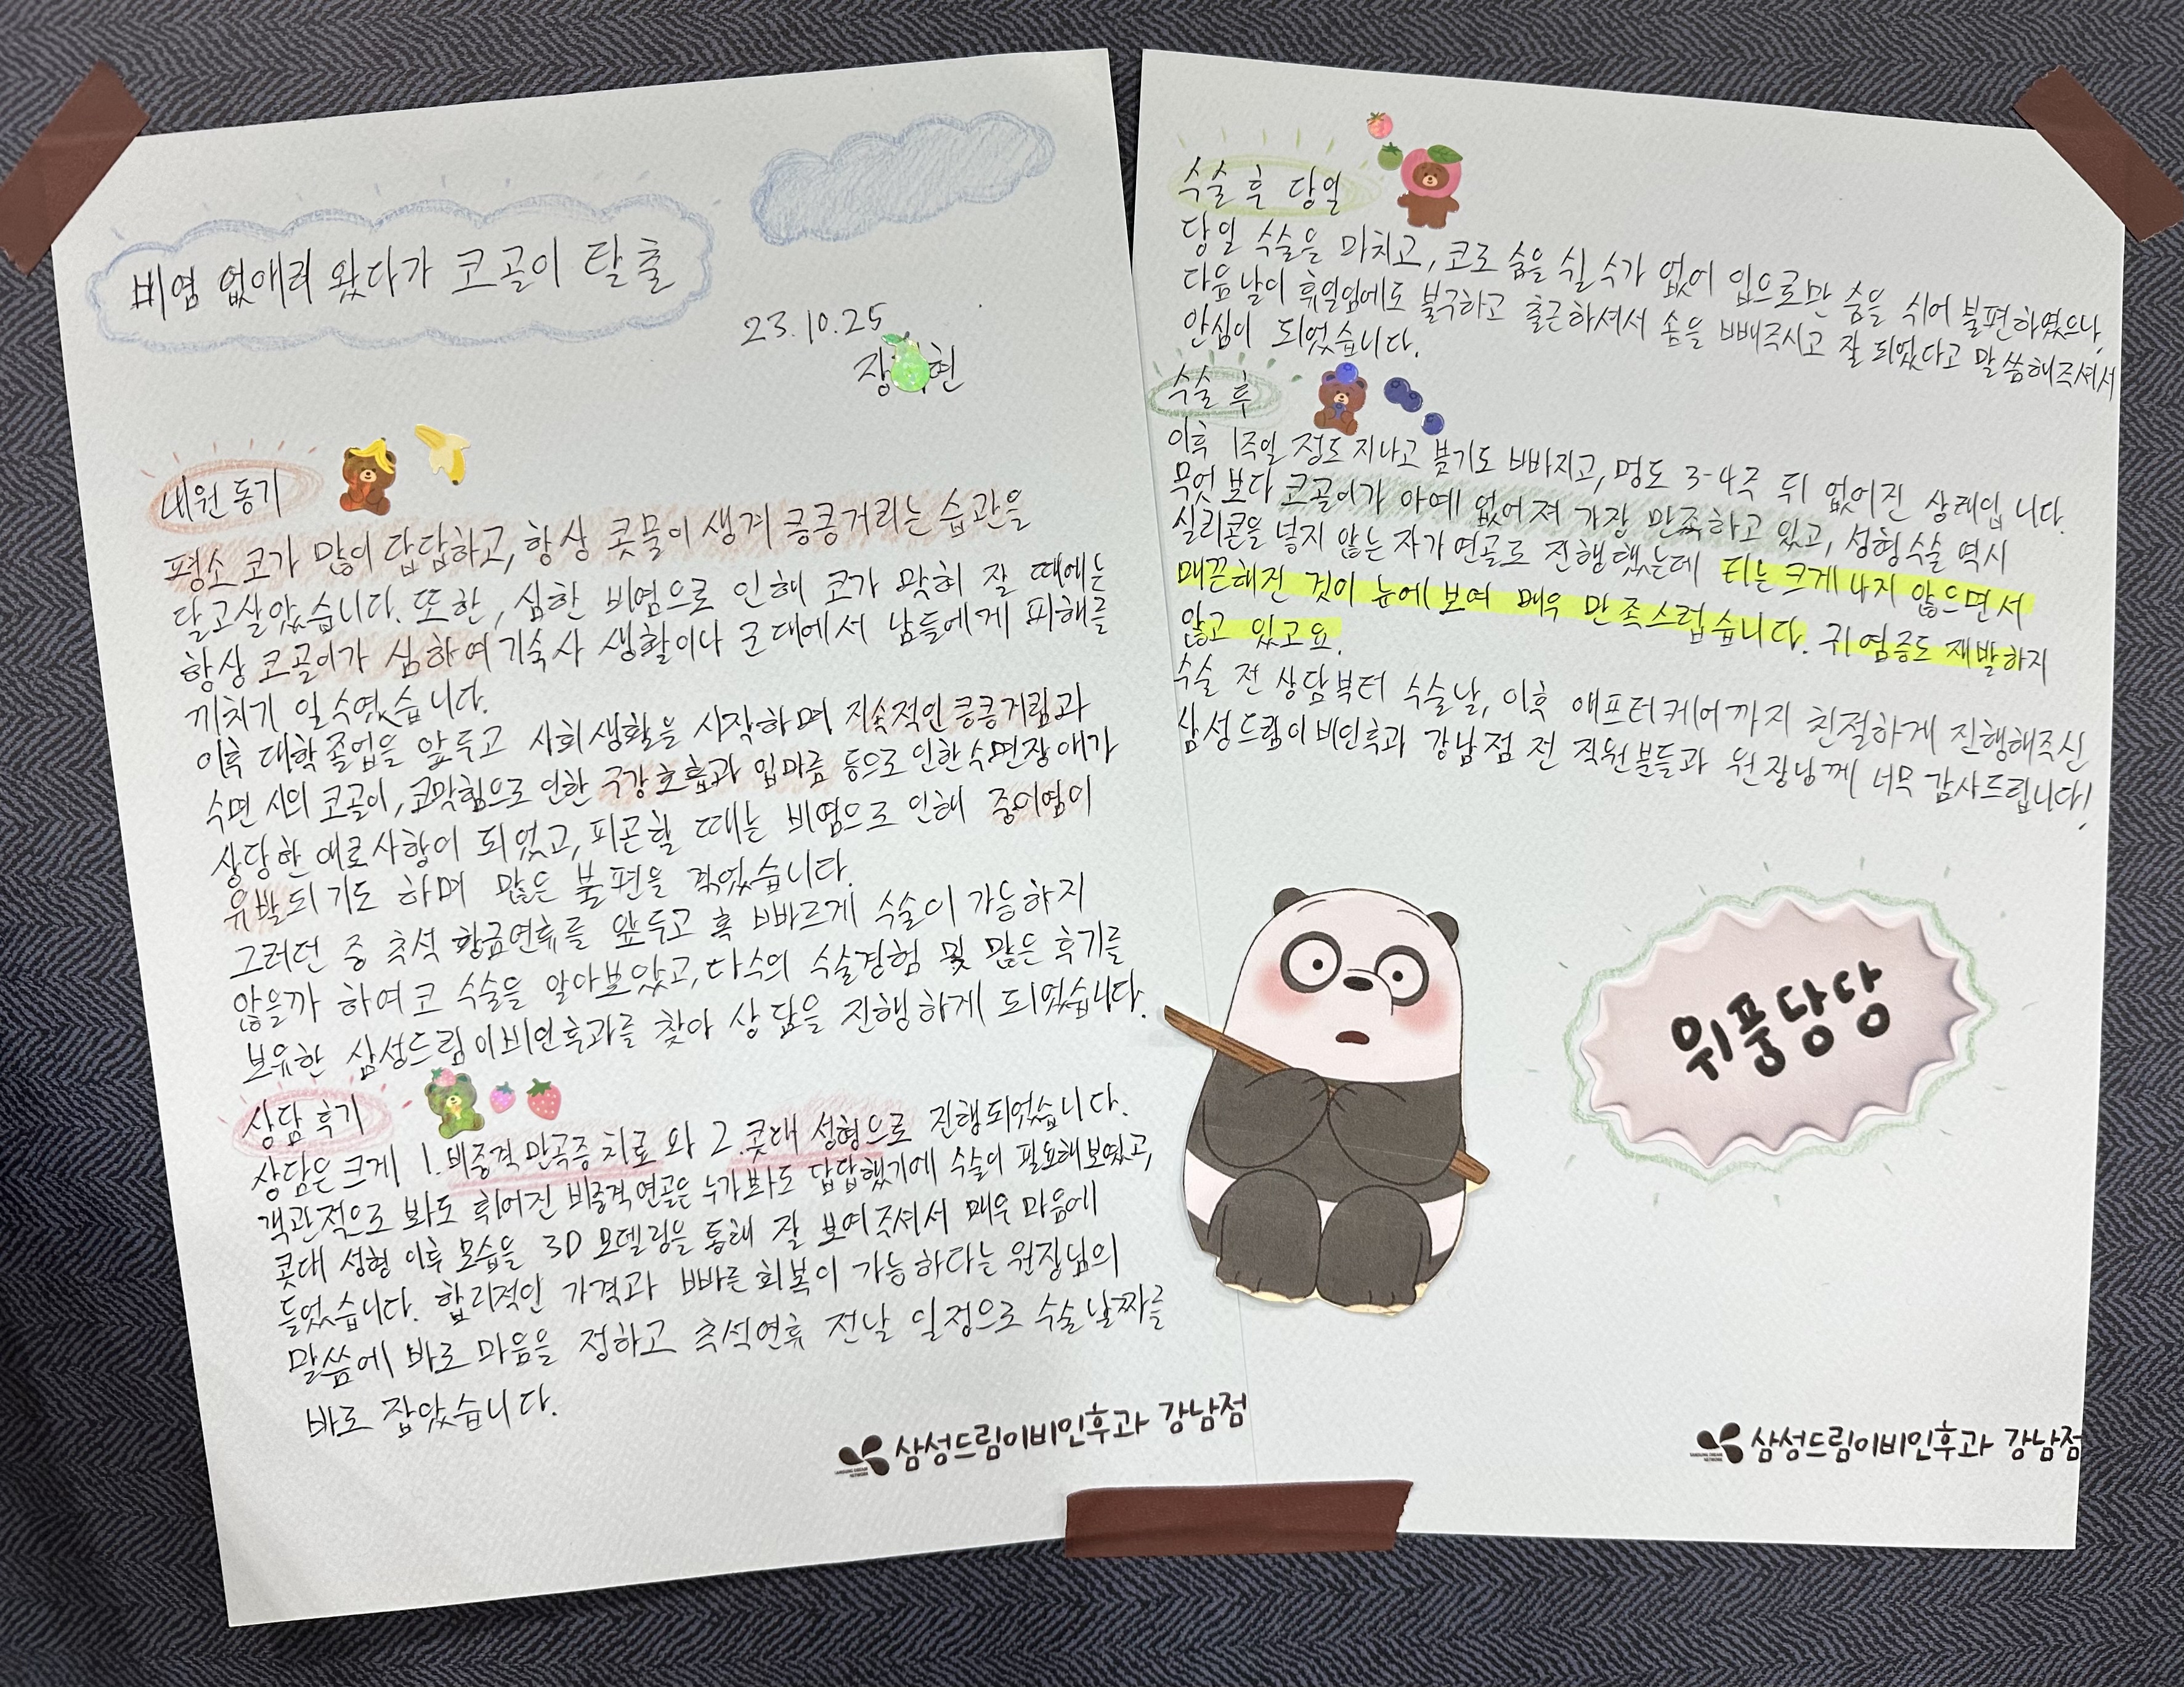 비염 없애러 왔다가 코골이 탈출
23.10.25
장 현
내원 동기
평소 코가 많이 답답하고, 항상 콧물이 생겨 킁킁거리는 습관을
달고 살았습니다. 또한, 심한 비염으로 인해 코가 막혀 잘 때에는
항상 코골이가 심하여 기숙사 생활이나 군대에서 남들에게 피해를
끼치기 일수였습니다.
이후 대학 졸업을 앞두고 사회생활을 시작하며 지속적인 킁킁거림과
수면 시의 코골이, 코막힘으로 인한 구강호흡과 입마름 등으로 인한 수면장애가
상당한 애로사항이 되었고, 피곤할 때는 비염으로 인해 중이염이
유발되기도 하며 많은 불편을 겪었습니다.
그러던 중 추석 황금연휴를 앞두고 혹 빠르게 수술이 가능하지
않을까 하여 코 수술을 알아보았고, 다수의 수술경험 및 많은 후기를
보유한 삼성드림이비인후과를 찾아 상담을 진행하게 되었습니다.
상담 후기
상담은 크게 1. 비중격 만곡증 치료와 2. 콧대 성형으로 진행되었습니다.
객관적으로 봐도 휘어진 비중격연골은 누가봐도 답답했기에 수술이 필요해보였고,
콧대 성형 이후 모습을 3D 모델링을 통해 잘 보여주셔서 매우 마음에
들었습니다. 합리적인 가격과 빠른 회복이 가능하다는 원장님의
말씀에 바로 마음을 정하고 추석연휴 전날 일정으로 수술날짜를
바로 잡았습니다.
삼성드림이비인후과 강남점
수술 후 당일
당일 수술을 마치고, 코로 숨을 쉴 수가 없어 입으로만 숨을 쉬어 불편하였으나,
다음날이 휴일임에도 불구하고 출근하셔서 솜을 빼주시고 잘 되었다고 말씀해주셔서
안심이 되었습니다.
수술 후
이후 1주일 정도 지나고 붓기도 빠지고, 멍도 3-4주 뒤 없어진 상태입니다.
무엇보다 코골이가 아예 없어져 가장 만족하고 있고, 성형수술 역시
실리콘을 넣지 않는 자가연골로 진행했는데 티는 크게 나지 않으면서
매끈해진 것이 눈에 보여 매우 만족스럽습니다. 귀 염증도 재발하지
않고 있고요.
수술 전 상담부터 수술날, 이후 애프터케어까지 친절하게 진행해주신
삼성드림이비인후과 강남점 전 직원분들과 원장님께 너무 감사드립니다!
위풍당당
삼성드림이비인후과 강남점